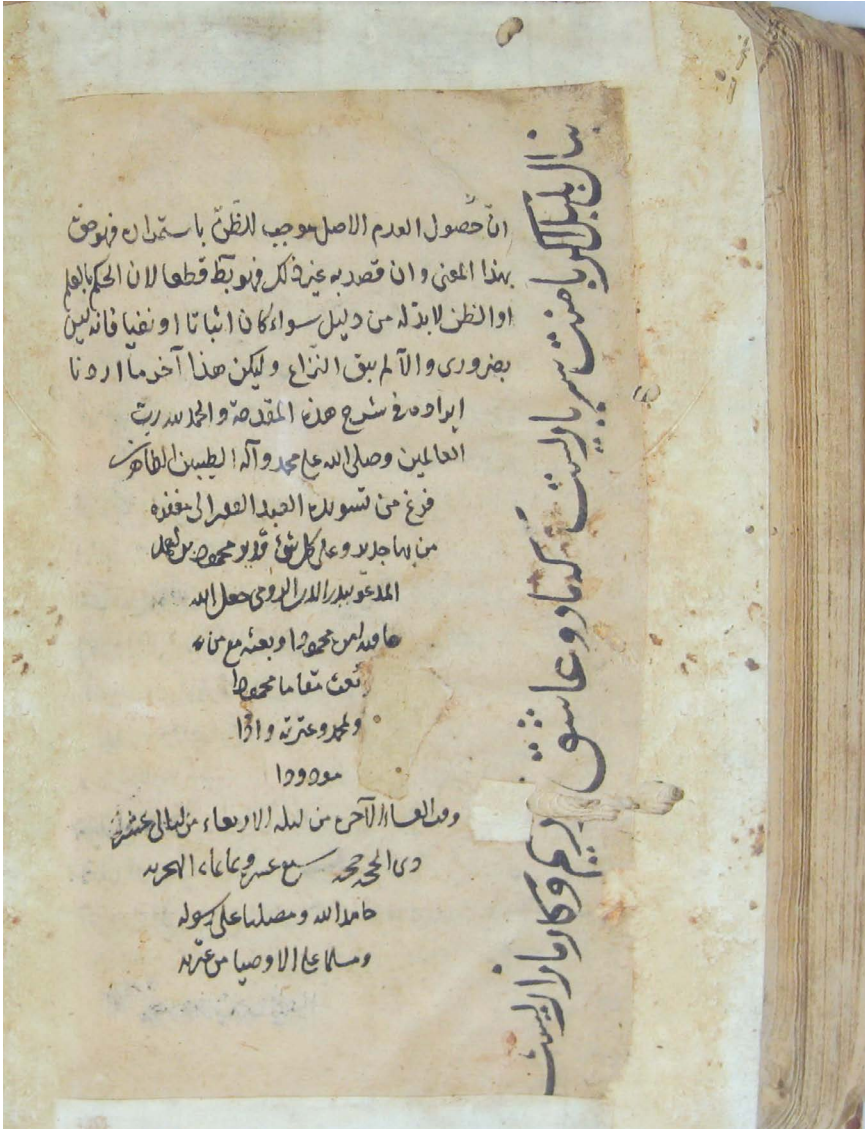 انّ حصُول العدم الاصل موجب للظّنّ باستمراره فهو حق
بهذا المعنى وان قصد به غير ذلك فهو بط قطعا لان الحكم بالعلم
او الظن لا بدّ له من دليل سواء كان اثباتا او نفيا فانه ليس
بضرورى والّا لم يبق النّزاع وليكن هذا آخر ما اردنا
ايراده فى شرح هذه المقدمة والحمد لله ربّ
العالمين وصلى الله على محمد وآله الطيبين الطاهرين
فرغ من تسويده العبد الفقير الى مغفرة
من بها جدير وعلى كل شئ قدير محمود بن
المدعوّ ببدر الدين الرومى جعل الله
عاقبة امره محمودا وبعثه مع من
بعث مقاما محمودا
محمد وعترته
مودودا
وقت العشاء الآخرة من ليلة الاربعاء من ليالى عشر
ذى الحجة حجة سبع عشرة وثمانمائة الهجرية
حامدا لله ومصليا على رسوله
ومسلما على الاوصيا من عترته
بنال بلبل اگر با منت سر ياريست
كه ما دو عاشق زاريم و كار ما زاريست